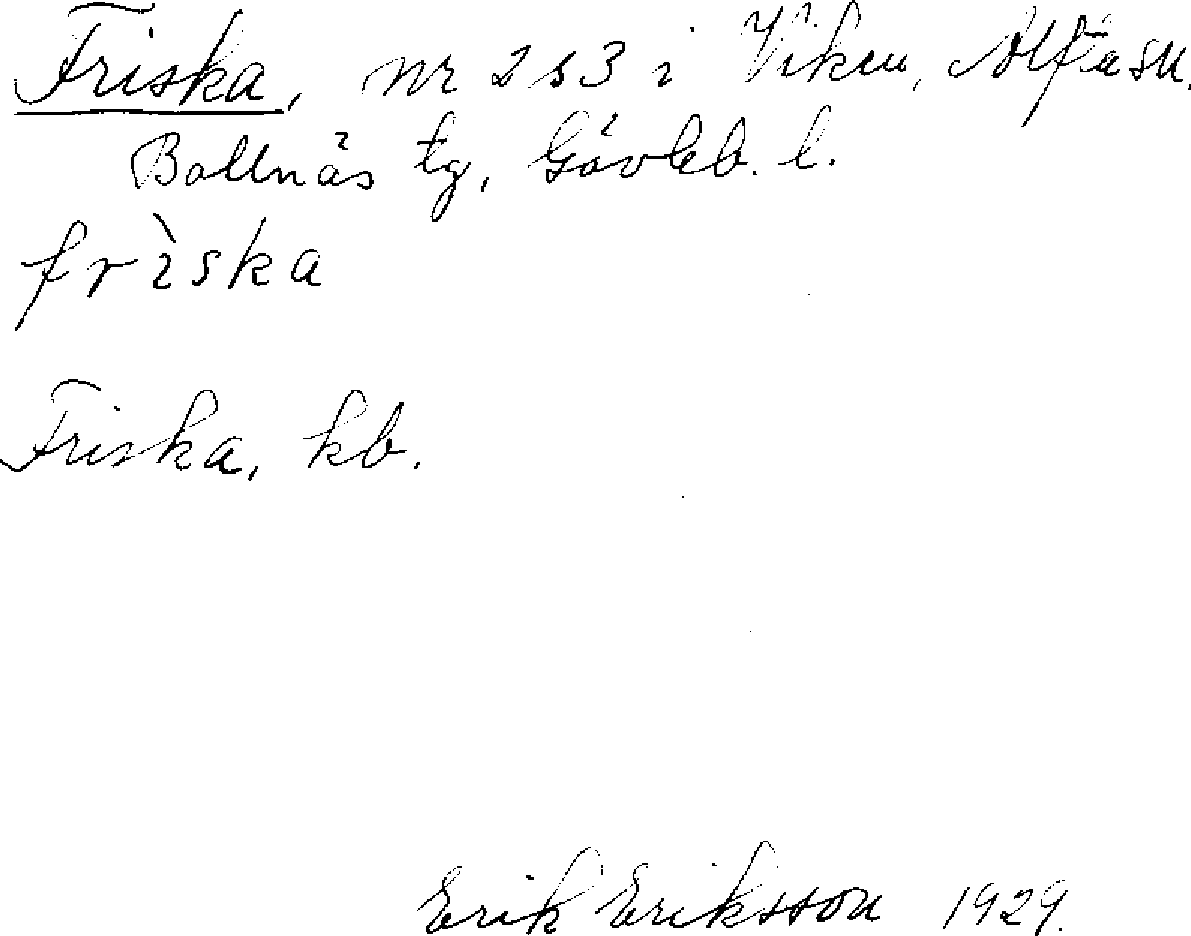 Friska, nr 2 s 3 i Viken, Alfta sn.
Bollnäs tg, Gävleb. l.
frìska
Friska, kb.
Erik Eriksson 1929.